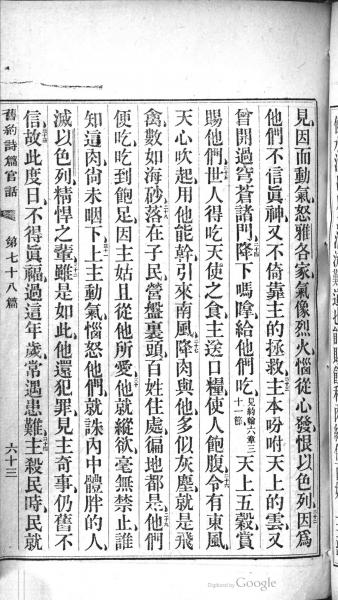 見因而動氣怒雅各家氣像烈火惱從心發恨以色列因爲
他們不信眞神又不倚靠主的拯救主本吩咐天上的雲又
曾開過穹蒼諸門降下嗎嗱給他們吃見約翰六章三十一節天上五穀賞
賜他們世人得吃天使之食主送口糧使人飽腹令有東風
天心吹起用他能幹引來南風降肉與他多似灰塵就是飛
禽數如海砂落在子民營盤裏頭百姓住處徧地都是他們
便吃吃到飽足因主姑且從他所愛他就縱欲毫無禁止誰
知這肉尙未咽下上主動氣惱怒他們就誅內中體胖的人
滅以色列精悍之輩雖是如此他還犯罪見主奇事仍舊不
信故此度日不得眞福過這年歲常遇患難主殺民時民就
舊約詩篇官話 第七十八篇 六十三
Digitized by Google